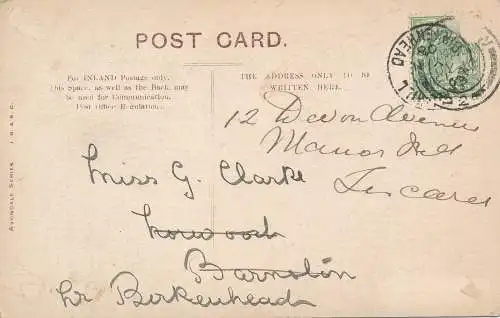 POST CARD.
For INLAND Postage only,
this Space, as well as the Back, may
be used for Communication.
Post Office Regulation.
THE ADDRESS ONLY TO BE
WRITTEN HERE.
12 Devon Avenue
Manor Hill
Liscard
Miss G. Clarke
Barnston
Nr Birkenhead
AVONDALE SERIES
BIRKENHEAD